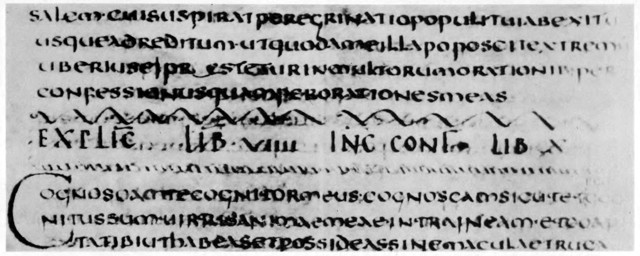 SALEM CUI SUSPIRAT PEREGRINATIO POPULI TUI AB EXITU
USQUE AD REDITUM · UT QUOD A ME ILLA POPOSCIT EXTREM
UBERIUS EI PRESTETUR IN MULTORUM ORATIONI PER
CONFESSIONIS QUAM PER ORATIONES MEAS
EXPLIC LIB VIIII INC CONF LIB X
COGNOSCAM TE COGNITOR MEUS · COGNOSCAM SICUT ET COG
NITUS SUM · VIRTUS ANIMAE MEAE · INTRA IN EAM · ET COAP
TA TIBI UT HABEAS ET POSSIDEAS SINE MACULA ET RUGA